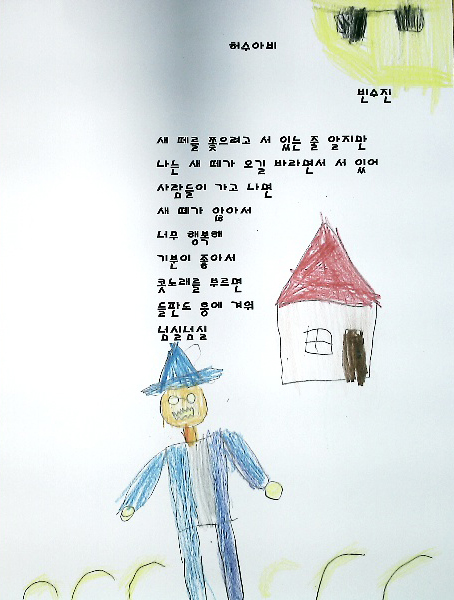 허수아비
빈수진
새 떼를 쫓으려고 서 있는 줄 알지만
나는 새 떼가 오길 바라면서 서 있어
사람들이 가고 나면
새 떼가 앉아서
너무 행복해
기분이 좋아서
콧노래를 부르면
들판도 흥에 겨워
넘실넘실